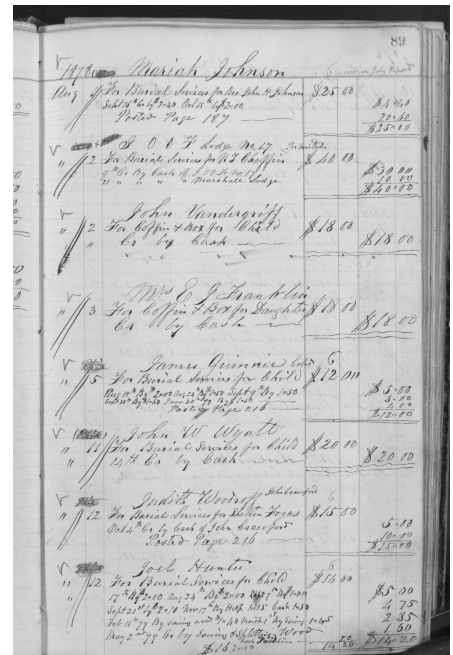 89
1878 Mariah Johnson
Aug For Burial Services for John H Johnson $25 00
Sept 16th Cr by $2.40 Oct 15th by $2.00 $4.40
Posted Page 187 20.60
$25.00
I O O F Lodge No 17
" 2 For Burial Services for N T Chaffin $40 00
9th Cr By Cash of I O O F No 17 $30 00
21 " " " " Marshall Lodge 10 00
$40.00
John Vandergriff
" 2 For Coffin & Box for Child $18 00
" Cr by Cash $18 00
Mrs E J Franklin
" 3 For Coffin & Box for Daughter $18 00
Cr by Cash $18 00
James Guinnie Cold
" 5 For Burial Services for Child $12 00
Aug 10th By $2.00 Aug 24th By 1.50 Sept 9th By 1.50 $5.00
Posted Page 216
$12.00
John W Wyatt
" 11 For Burial Services for Child $20 00
" 14th Cr by Cash $20 00
Judith Woodroff John Crawford
" 12 For Burial Services for $15 00
Oct 4th Cr by Cash of John Crawford 5.00
Posted Page 216 10.00
$15.00
Joel Hunter
" 12 For Burial Services for Child $14 00
17th By $2.00 Aug 24th By $2.00 $5 00
Sept 21st By $2.10 Nov 17th By Help 1.15 Cash 1.50 4 75
Feb 15th 79 By sawing wood 1.40 By Sawing 1.45 2 85
May 2nd 79 Cr by Sawing & Splitting Wood 1 60
20 $14.20
14 20